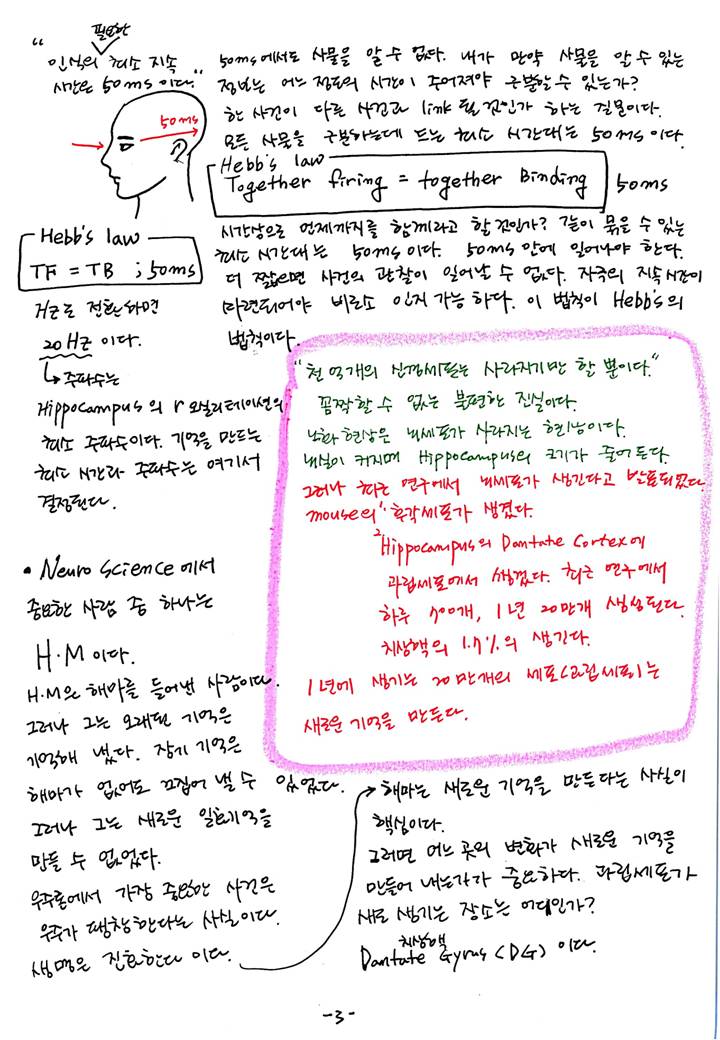 "인식의 필요한 최소 지속
시간은 50ms 이다."
50ms
50ms에서도 사물을 알 수 없다. 내가 만약 사물을 알 수 있는
정보는 어느 정도의 시간이 주어져야 구분할 수 있는가?
한 사건이 다른 사건과 link 될 것인가 하는 질문이다.
모든 사물을 구분하는데 드는 최소 시간대는 50ms 이다.
Hebb's law
Together firing = together Binding
50ms
시간상으로 언제까지를 함께라고 할 것인가? 같이 묶을 수 있는
최소 시간대는 50ms 이다. 50ms 안에 일어나야 한다.
더 짧으면 사건의 관찰이 일어날 수 없다. 자극의 지속시간이
마련되어야 비로소 인지 가능하다. 이 법칙이 Hebb's의
법칙이다.
Hebb's law
TF = TB ; 50ms
Hz로 전환하면
20Hz 이다.
↳ 주파수는
Hippocampus의 r 오실리테이션의
최소 주파수이다. 기억을 만드는
최소 시간과 주파수는 여기서
결정된다.
"천억개의 신경세포는 사라지기만 할 뿐이다."
꼼짝할 수 없는 불편한 진실이다.
노화현상은 뇌세포가 사라지는 현상이다.
뇌실이 커지며 Hippocampus의 크기가 줄어든다.
그러나 최근 연구에서 뇌세포가 생긴다고 발표되었다.
mouse의 ¹후각세포가 생겼다.
²Hippocampus의 Dantate Cortex에
과립세포에서 생겼다. 최근 연구에서
하루 700개, 1년 20만개 생성된다.
치상핵의 1.7%의 생긴다.
1년에 생기는 20만개의 세포(과립세포)는
새로운 기억을 만든다.
• Neuro Science에서
중요한 사람 중 하나는
H·M 이다.
H·M은 해마를 들어낸 사람이다.
그러나 그는 오래된 기억은
기억해 냈다. 장기 기억은
해마가 없어도 끄집어 낼 수 있었다.
그러나 그는 새로운 일화기억을
만들 수 없었다.
우주론에서 가장 중요한 사건은
우주가 팽창한다는 사실이다.
생명은 진화한다 이다.
해마는 새로운 기억을 만든다는 사실이
핵심이다.
그러면 어느 곳의 변화가 새로운 기억을
만들어 내는가가 중요하다. 과립세포가
새로 생기는 장소는 어디인가?
치상핵
Dantate Gyrus (DG) 이다.
-3-